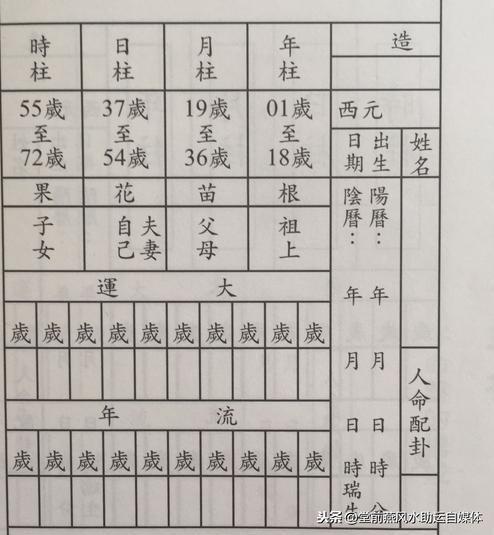 造
西元
姓名
出生日期
陽曆：年 月 日 時 分
陰曆：年 月 日 時瑞生
人命配卦
年柱
月柱
日柱
時柱
01歲至18歲
19歲至36歲
37歲至54歲
55歲至72歲
根
苗
花
果
祖上
父母
夫妻
自己
子女
大運
歲 歲 歲 歲 歲 歲 歲 歲 歲 歲
流年
歲 歲 歲 歲 歲 歲 歲 歲 歲 歲
头条 @堂前燕风水助运自媒体